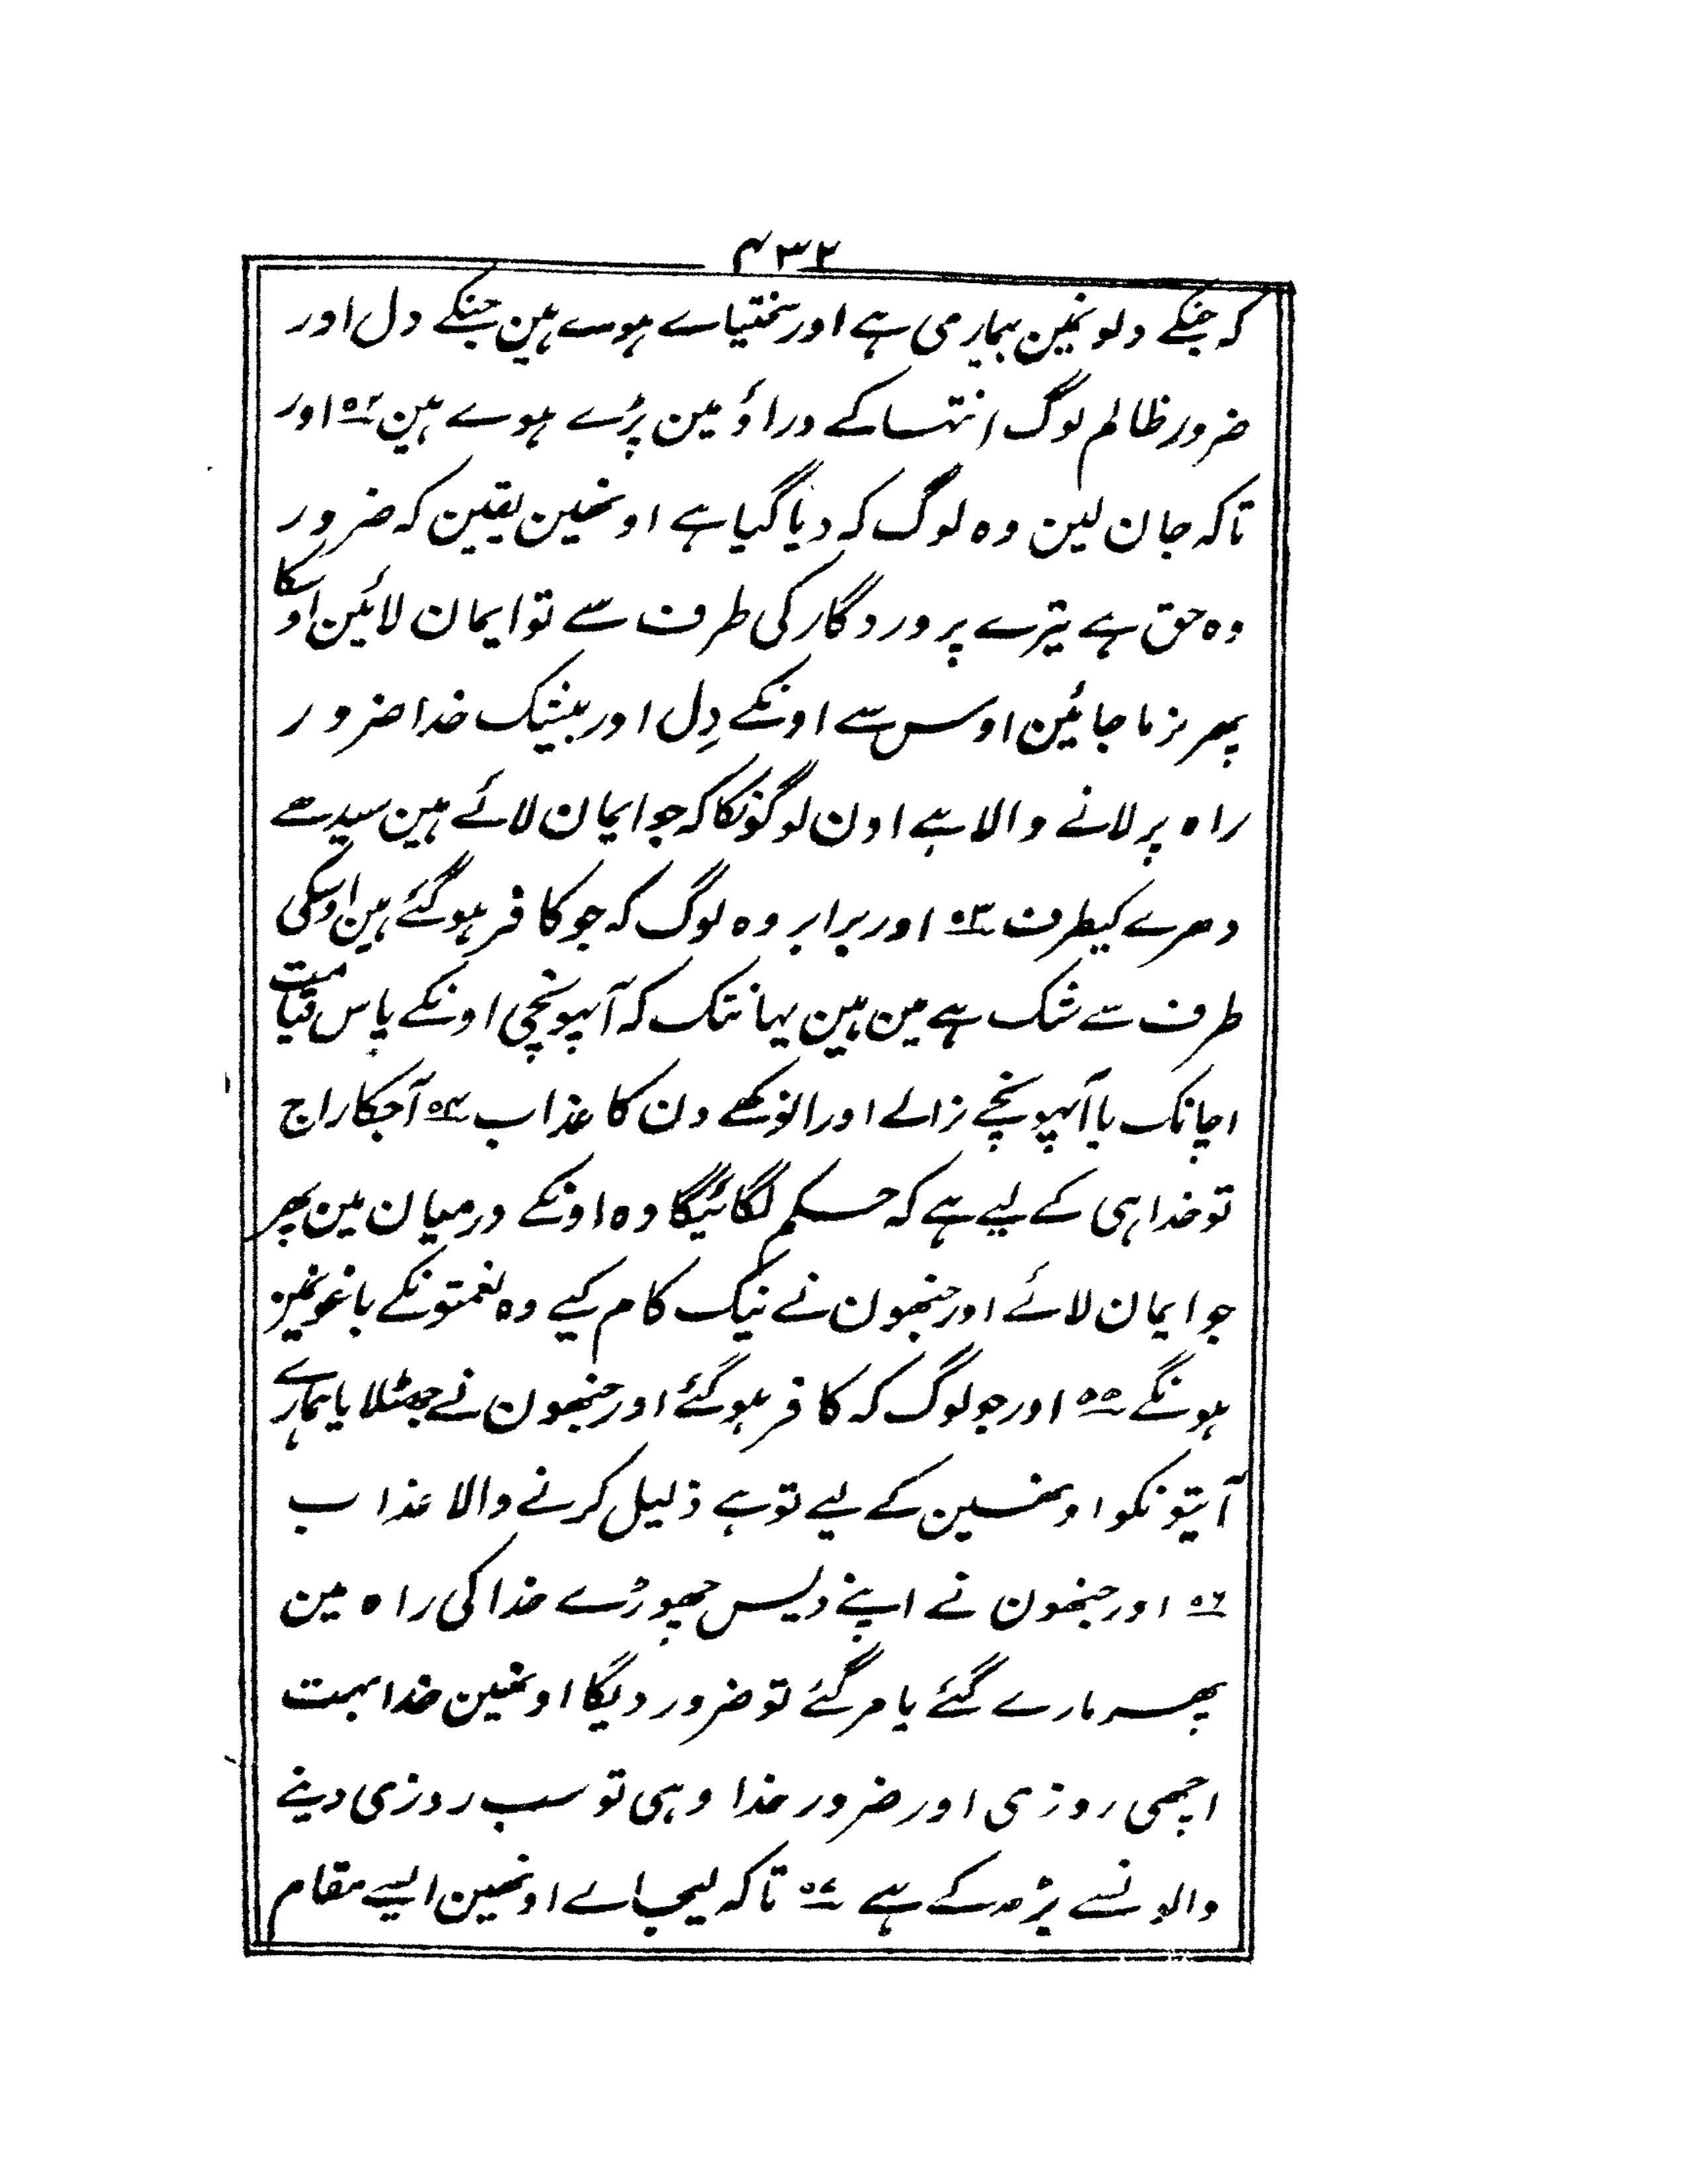 ۴۳۲
کہ جنکے دلونمین بیماری ہے اور سختیاے ہوے ہین جنکے دل اور
ضرور ظالم لوگ انتہا کے وراؤ مین پڑے ہوے ہین ۵۲ اور
تاکہ جان لین وہ لوگ کہ دیا گیا ہے اونھین یقین کہ ضرور
وہ حق ہے تیرے پروردگار کی طرف سے تو ایمان لائین اوسکا
پھر نرما جائین اوس سے اونکے دِل اور بیشک خدا ضرور
راہ پر لانے والا ہے اون لوگونکا کہ جو ایمان لائے ہین سیدھے
دھرے کیطرف ۵۳ اور برابر وہ لوگ کہ جو کافر ہو گئے ہین اوسکی
طرف سے شک ہے مین ہین یہانتک کہ آپہونچی اونکے پاس قیامت
اچانک یا آپہونچے نرالے اور انوکھے دن کا عذاب ۵۴ آجکا راج
تو خدا ہی کے لیے ہے کہ حکم لگائیگا وہ اونکے درمیان مین پھر
جو ایمان لائے اور جنھون نے نیک کام کیے وہ نعمتونکے باغونمین
ہونگے ۵۵ اور جو لوگ کہ کافر ہو گئے اور جنھون نے جھٹلایا ہمارے
آیتونکو اونھین کے لیے تو ہے ذلیل کرنے والا عذاب
۵۶ اور جنھون نے اپنے دیس چھوڑے خدا کی راہ مین
پھر مارے گئے یا مر گئے تو ضرور دیگا اونھین خدا بہت
اچھی روزی اور ضرور خدا وہی تو سب روزی دینے
والونسے بڑھ کے ہے ۵۷ تاکہ لیجاے اونھین ایسے مقام